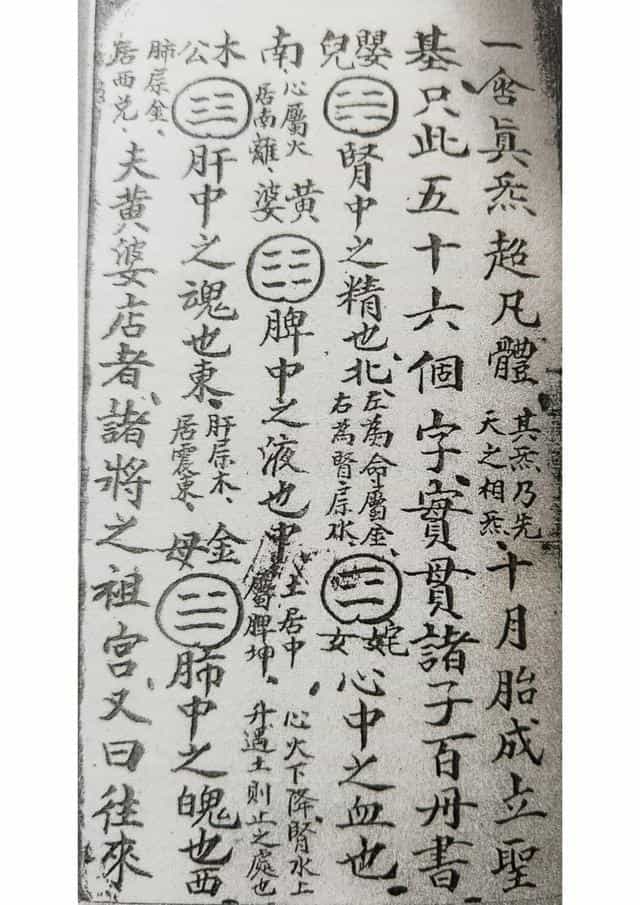 一含眞炁超凡體其炁乃先天之相炁十月胎成立聖
基只此五十六個字實貫諸子百册書
嬰兒腎中之精也北左為命屬金右為腎属水姹女心中之血也
南心屬火居南離黃婆脾中之液也中土居中屬脾坤心火下降腎水上升遇土則止之處也
木公肝中之魂也東肝属木居震東金母肺中之魄也西
肺属金居西兌夫黃婆店者諸將之祖宮又曰往來